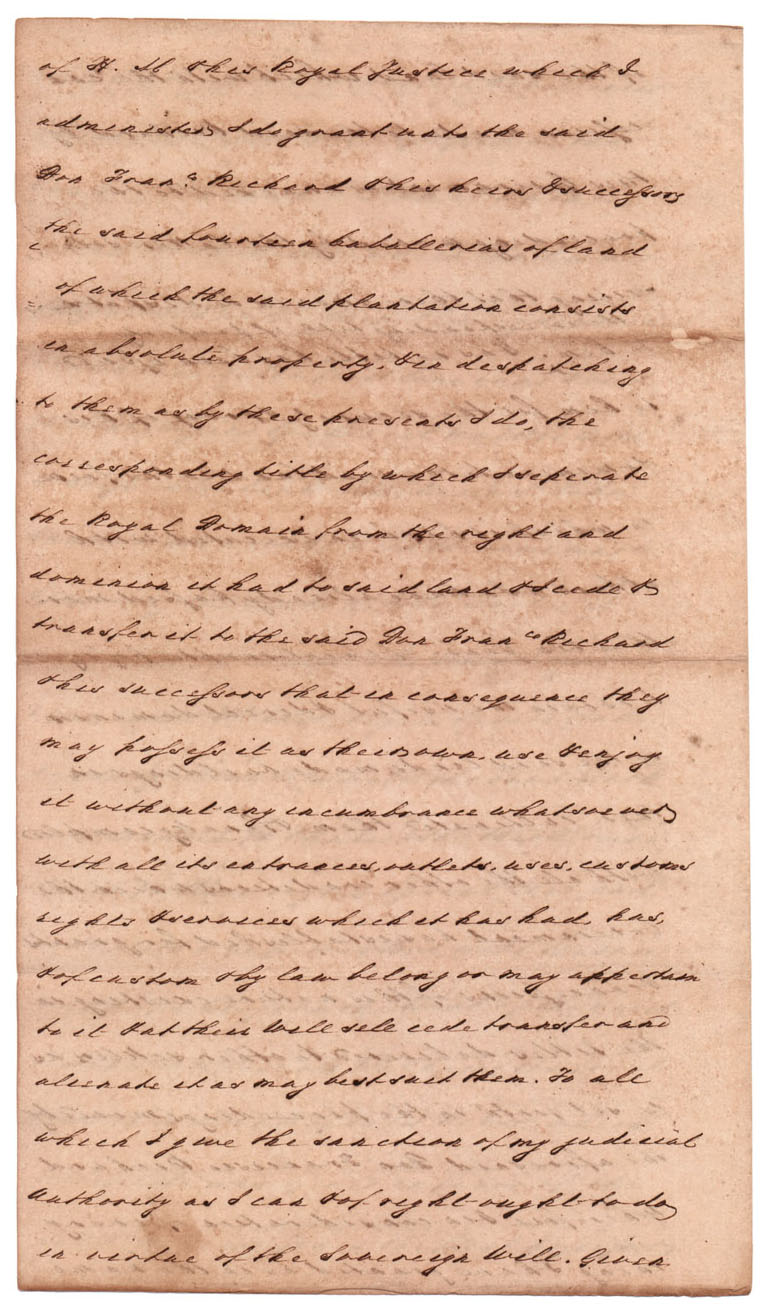 of H. M. & his Royal Justice which I
administer, I do grant unto the said
Don Franco. Richard & his heirs & successors
the said fourteen Caballerias of land
of which the said plantation consists
in absolute property, & in despatching
to them as by these presents I do, the
corresponding title by which I seperate
the Royal Domain from the right and
dominion it had to said land & I cede &
transfer it to the said Don Franco Richard
& his successors that in consequence they
may possess it as their own, use & enjoy
it without any incumbrance whatsoever
with all its entrances, outlets, uses, customs
rights & services which it has had, has,
& of custom & by law belong or may appertain
to it & at their will sell cede transfer and
alienate it as may best suit them. To all
which I give the sanction of my judicial
authority as I can & of right ought to do
in virtue of the Sovereign Will. Given